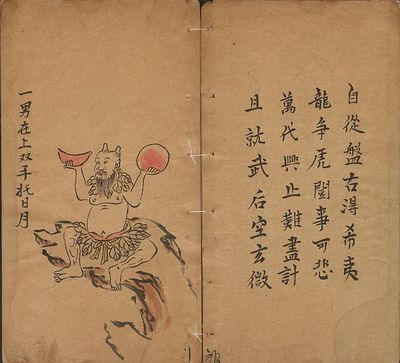 自從盤古淂希夷
龍爭虎鬪事可悲
萬代興止難盡計
且就武后空玄微
一男在上双手托日月